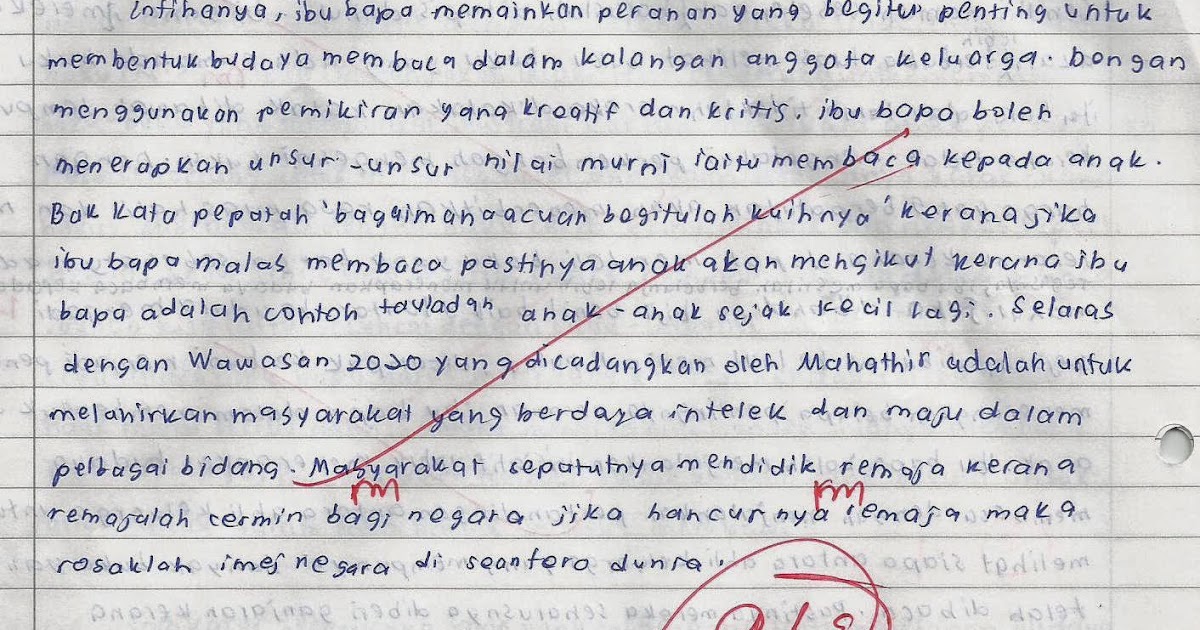 Intihanya, ibu bapa memainkan peranan yang begitu penting untuk
membentuk budaya membaca dalam kalangan anggota keluarga. Dengan
menggunakan pemikiran yang kreatif dan kritis, ibu bapa boleh
menerapkan unsur-unsur nilai murni iaitu membaca kepada anak.
Bak kata pepatah 'bagaimana acuan begitulah kuihnya' kerana jika
ibu bapa malas membaca pastinya anak akan mengikut kerana ibu
bapa adalah contoh tauladan anak-anak sejak kecil lagi. Selaras
dengan Wawasan 2020 yang dicadangkan oleh Mahathir adalah untuk
melahirkan masyarakat yang berdaya intelek dan maju dalam
pelbagai bidang. Masyarakat sepatutnya mendidik remaja kerana
rm rm
remajalah cermin bagi negara jika hancurnya remaja maka
rosaklah imej negara di seantero dunia.